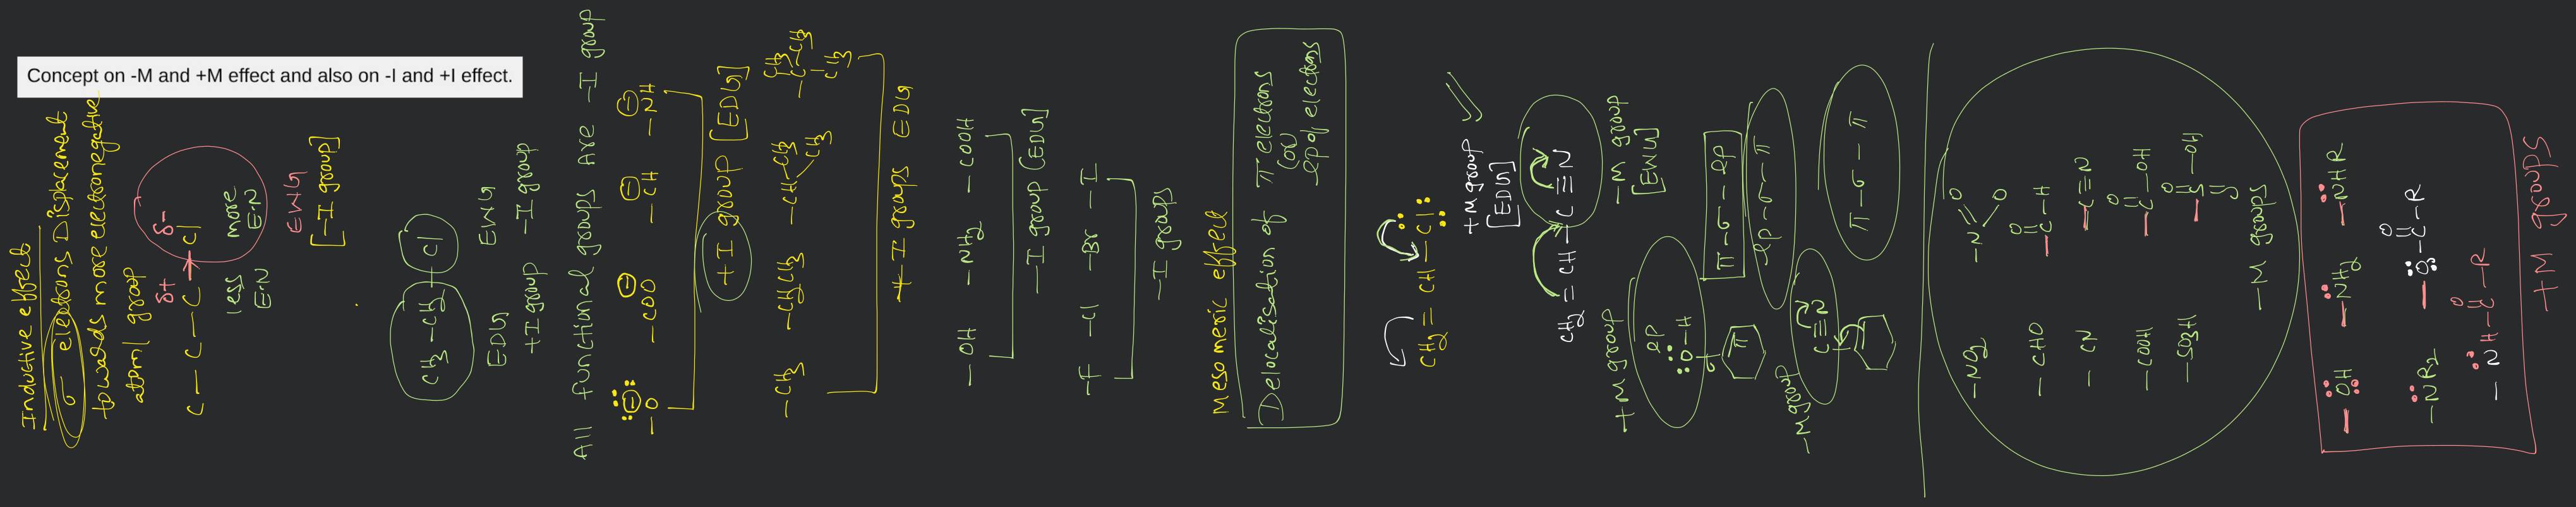 Concept on -M and +M effect and also on -I and +I effect.
Inductive effect
σ electrons Displacement
towards more electronegative
atom/ group
δ+ δ-
C — C — C → Cl
less more
E·N E·N
EWG
[-I group]
CH3 - CH2 + Cl
EDG EWG
+I group -I group
All functional groups Are -I group
-O⊖ -COO⊖ -CH⊖ -NH⊖
+I group [EDG]
-CH3 -CH2CH3 -CH-CH3 -C-CH3
CH3 CH3 CH3
+I groups EDG
-OH -NH2 -COOH
-F -Cl -Br -I
-I groups
Mesomeric effect
Delocalisation of π electrons
(or)
lp of electrons
CH2 = CH - Cl
+M group
[EDG]
CH2 = CH + C ≡ N
-M group
+M group
lp
O-H
π
π-σ-lp
lp-σ-π
-M group
C≡N
π-σ-π
-NO2 -N O O
-CHO -C-H O
-CN -C≡N
-COOH -C-OH O
-SO3H -S-OH O O
-M groups
-OH -NH2 -NHR
-NR2 -O-C-R O
-NH-C-R O
+M groups